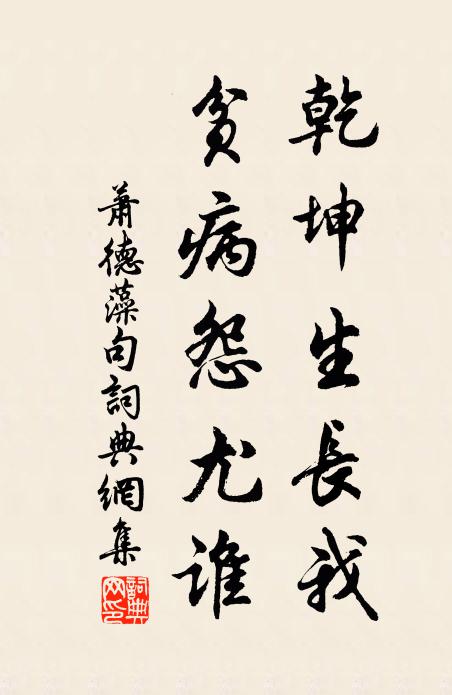 乾坤生長我
貧病怨尤誰
蕭德藻句詞典網集
詞典網印